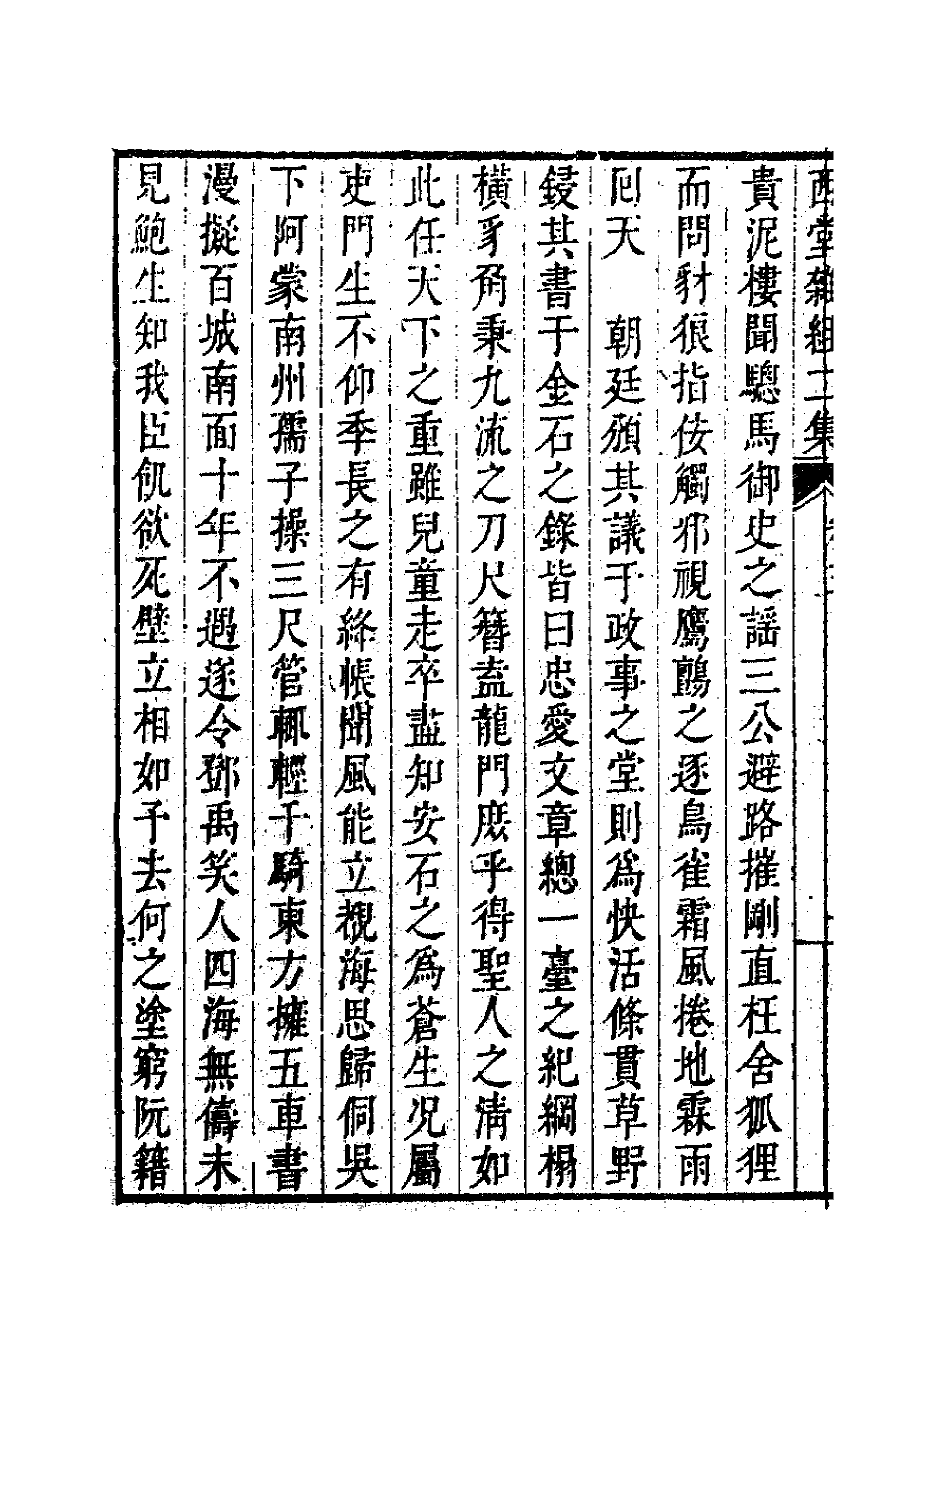 西堂雜組二集
貴泥樓聞驄馬御史之謡三公避路摧剛直枉舍狐狸
而問豺狼指佞觸邪視鷹鸇之逐鳥雀霜風捲地霖雨
囘天　朝廷頒其議于政事之堂則爲快活條貫草野
鋟其書于金石之錄皆曰忠愛文章總一臺之紀綱榻
橫豸角秉九流之刀尺簪盍龍門庶乎得聖人之淸如
此任天下之重雖兒童走卒盡知安石之爲蒼生况屬
吏門生不仰季長之有絳帳聞風能立覩海思歸侗吳
下阿蒙南州孺子操三尺管輒輕千騎東方擁五車書
漫擬百城南面十年不遇遂令鄧禹笑人四海無儔未
見鮑生知我臣飢欲死壁立相如予去何之塗窮阮籍